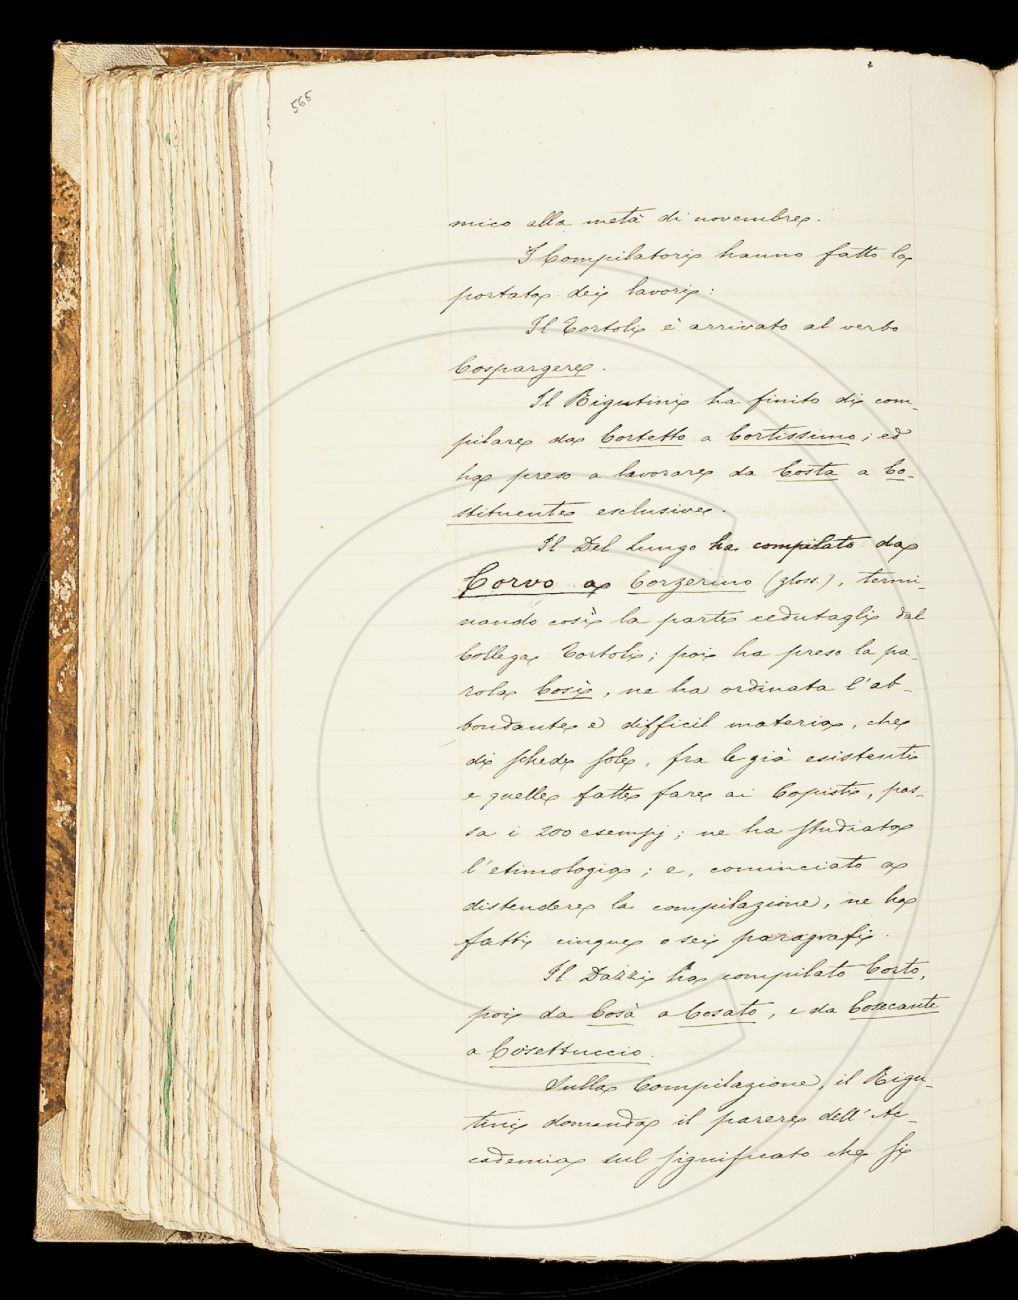 566
mico alla metà di novembre.
I Compilatori hanno fatto la
portata dei lavori:
Il Tortoli è arrivato al verbo
Cospargere.
Il Rigutini ha finito di com-
pilare da Cortetto a Cortissimo; ed
ha preso a lavorare da Costa a Co-
stituente esclusive.
Il Del Lungo ha compilato da
Corvo a Corzerino (gloss.), termi-
nando così la parte cedutagli dal
Collega Tortoli; poi ha preso la pa-
rola Così, ne ha ordinata l'ab-
bondante e difficil materia, che
di schede sole, fra le già esistenti
e quelle fatte fare ai Copisti, pas-
sa i 200 esempj; ne ha studiata
l'etimologia; e, cominciato a
distendere la compilazione, ne ha
fatti cinque o sei paragrafi.
Il Dazzi ha compilato Corto,
poi da Cosà a Cosato, e da Cosecante
a Cosettuccio.
Sulla Compilazione, il Rigu-
tini domanda il parere dell'Ac-
cademia sul significato che si